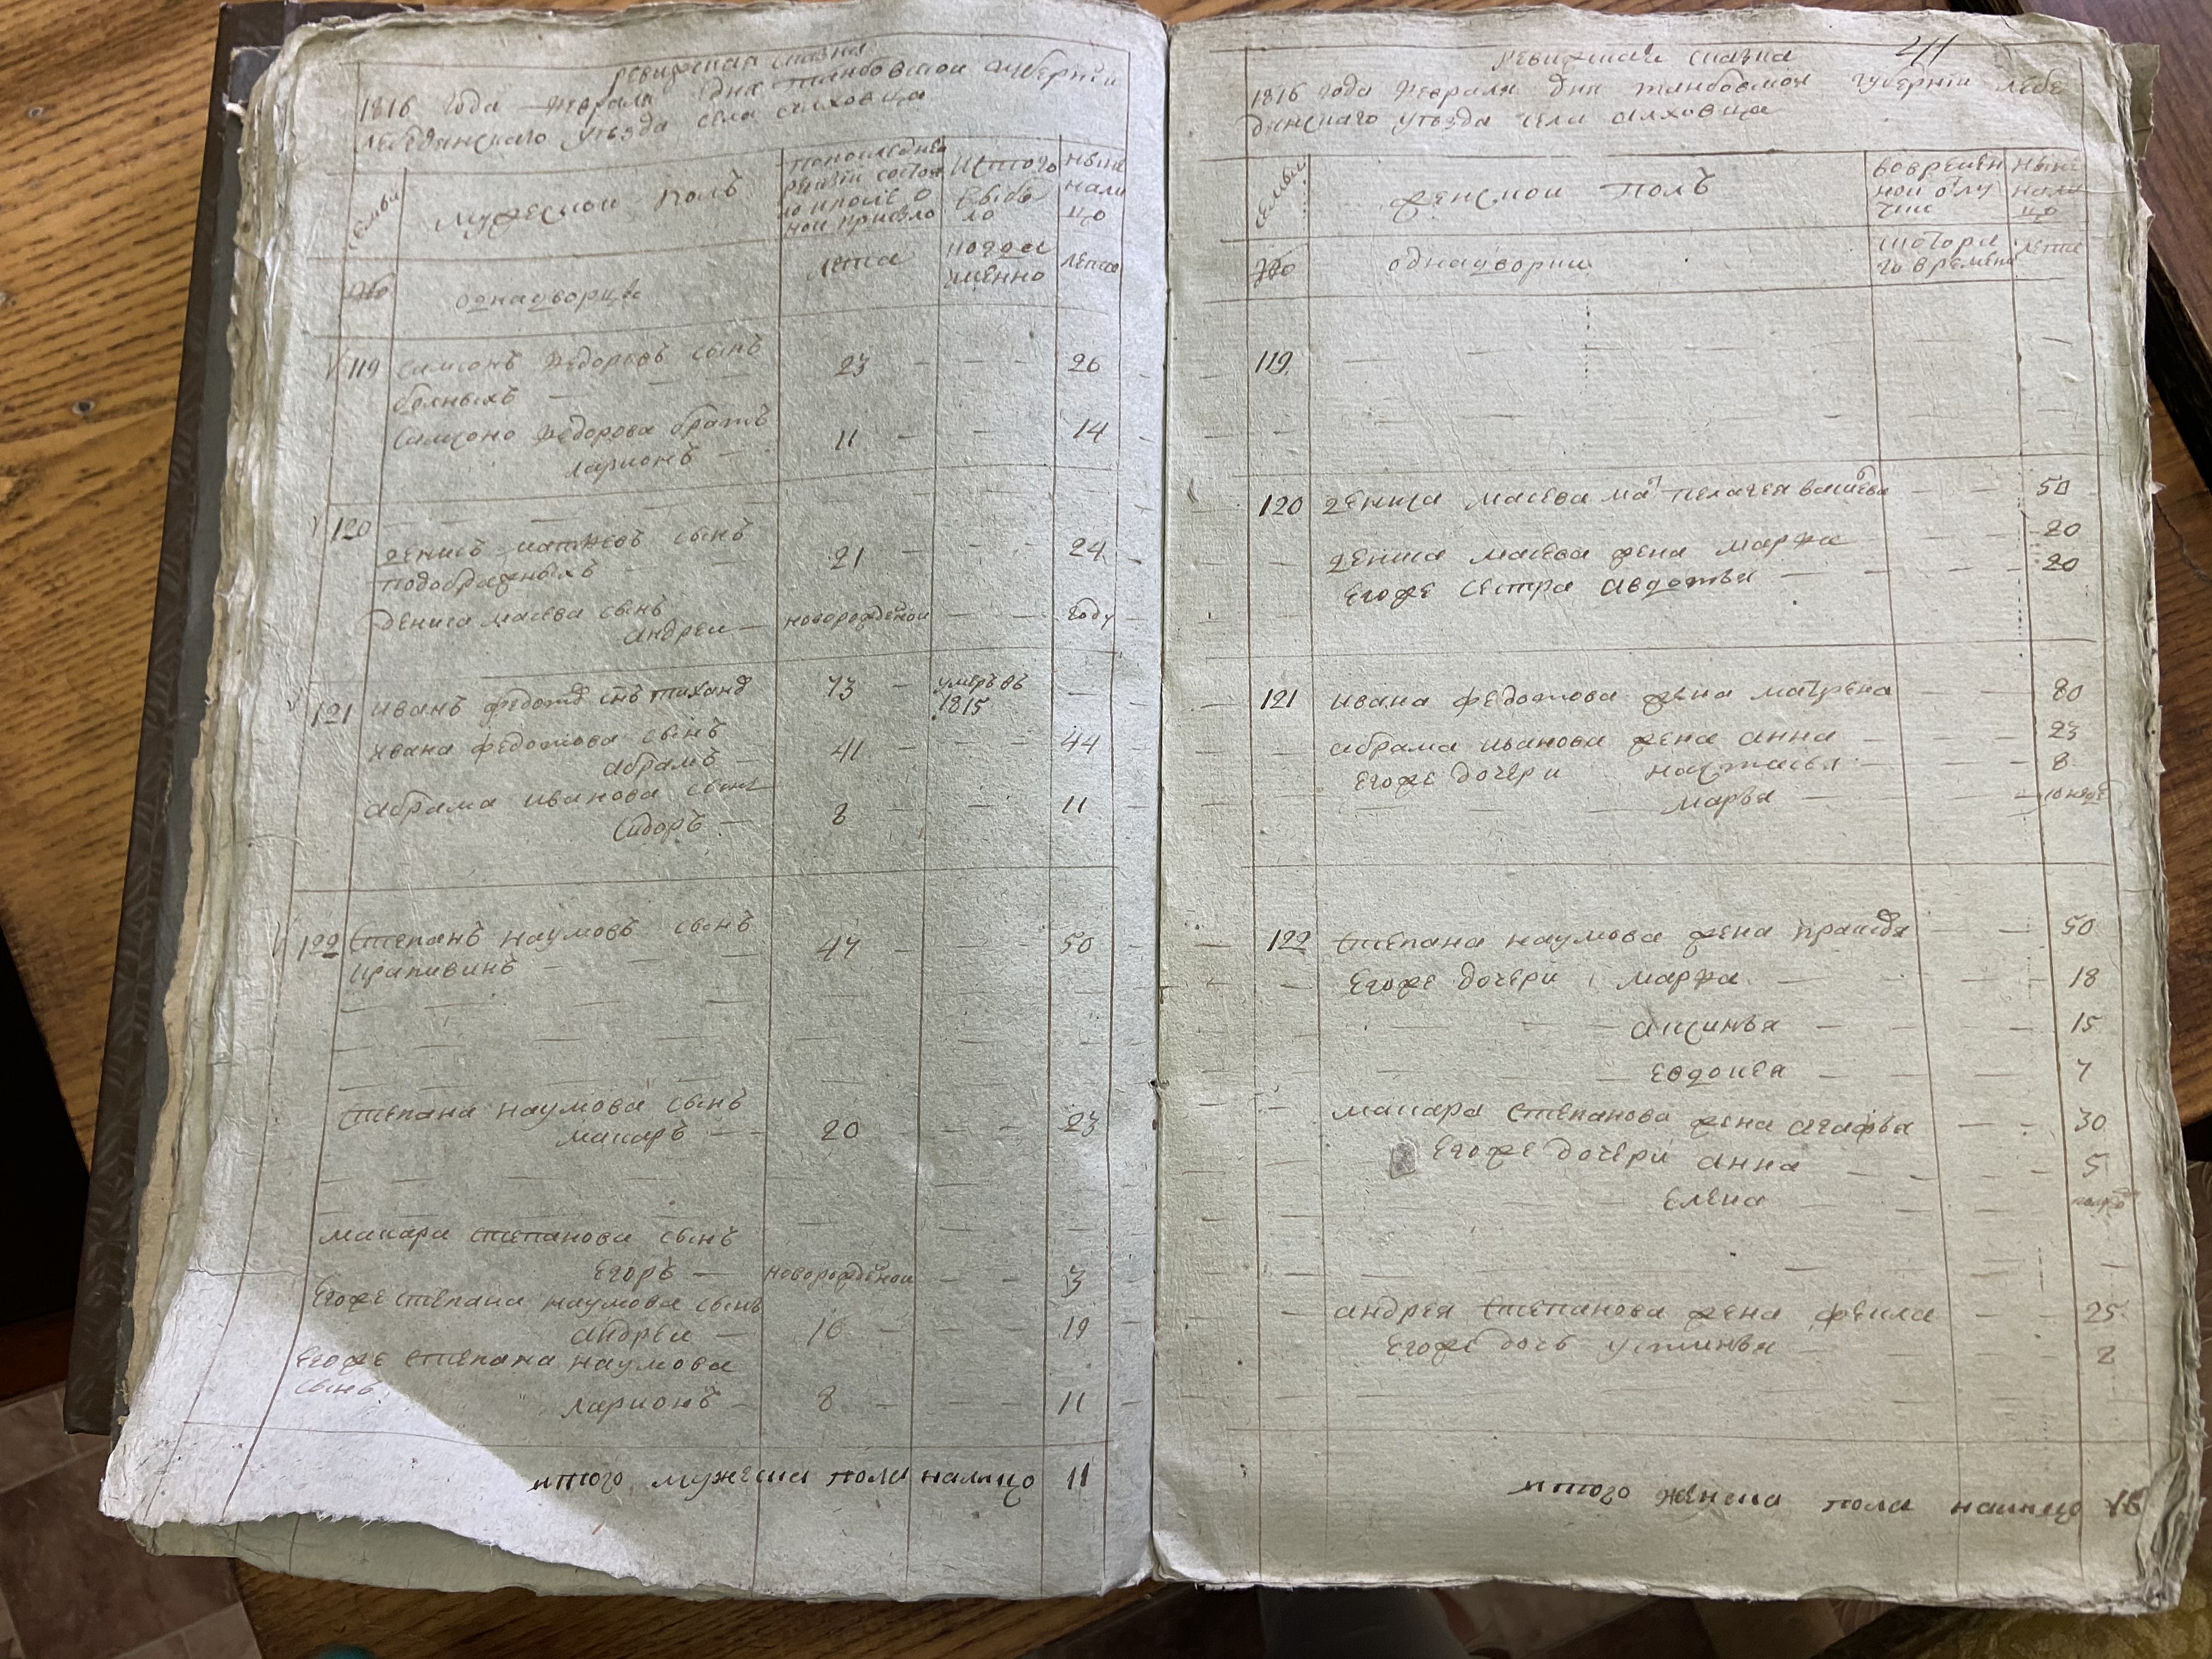 ревижская сказка
1816 года февраля дня танбовской губернии
лебедянскаго уезда села ольховца
семьи
мужеской полъ
попоследней
ревизи состоя
ло ипосле о
ной прибыло
Истого
выбы
ло
ныне
нали
цо
№
однадворцы
лета
когда
имянно
лета
119 Самсонъ Федоровъ сынъ 23 26
болныхъ
Самсоно Федорова братъ 11 14
ларионъ
120
денисъ матвеевъ сынъ 21 24
подображныхъ
дениса масева сынъ новорожденой году
андреи
121 иванъ федотов снъ тихано 73 умеръ въ 1815
ивана федотова сынъ 41 44
абрамъ
абрама иванова сынъ 8 11
Сидоръ
122 степанъ наумовъ сынъ 47 50
крапивинъ
степана наумова сынъ
макаръ 20 23
макара степанова сынъ
Егоръ новорожденои 3
Егоже степана наумова сынъ
андреи 16 19
Егоже степана наумова
сынъ
ларионъ 8 11
итого мужеска пола налицо 11
ревижская сказка 211
1816 года февраля дня танбовской губернии лебе
дянскаго уезда села ольховца
семьи
женской полъ
вовремен
ной отлу
чке
ныне
нали
цо
№
однадворки
скотора
го времени
лета
119
120 дениса масева мат пелагея васильева 50
дениса масева жена марфа 20
Егоже сестра авдотья 20
121 ивана федотова жена матрена 80
абрама иванова жена анна 23
Егоже дочери настасья 8
марья
122 степана наумова жена праскодя 50
Егоже дочери марфа 18
аксинья 15
Евдокея 7
макара степанова жена агафья 30
Егоже дочери анна 5
Елена
андрея степанова жена фекла 25
Егоже дочь устинья 2
итого женска пола налицо 16